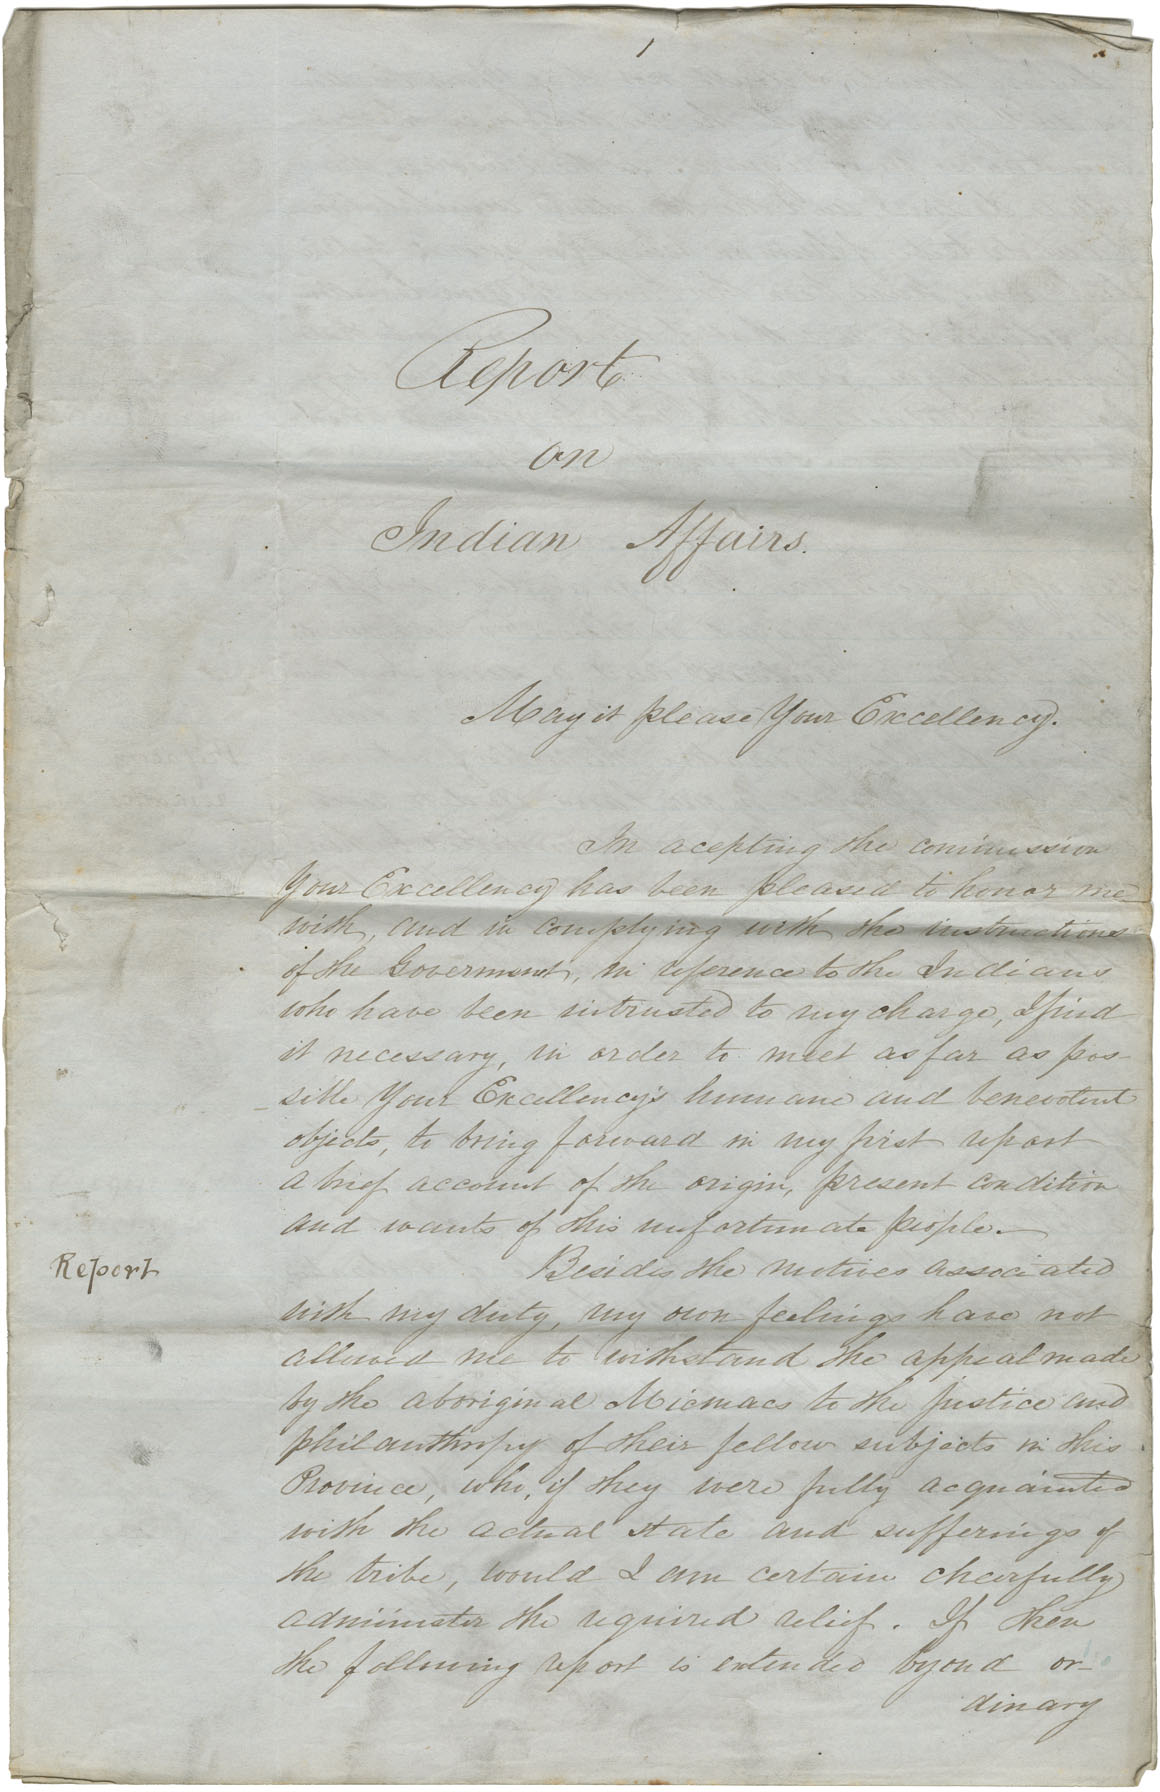 1
Report
on
Indian Affairs.
May it please Your Excellency.
In acepting the commission
Your Excellency has been pleased to honor me
with, and in complying with the instructions
of the Goverment, in reference to the Indians
who have been intrusted to my charge, I find
it necessary, in order to meet as far as pos-
-sible Your Excellency's humane and benevolent
objects, to bring forward in my first report
a brief account of the origin, present condition
and wants of this unfortunate people.—
Report
Besides the motives associated
with my duty, my own feelings have not
allowed me to withstand the appeal made
by the aboriginal Micmacs to the justice and
philanthropy of their fellow subjects in this
Province, who, if they were fully acquainted
with the actual state and sufferings of
the tribe, would I am certain cheerfully
administer the required relief. If then
the following report is extended byond or-
dinary